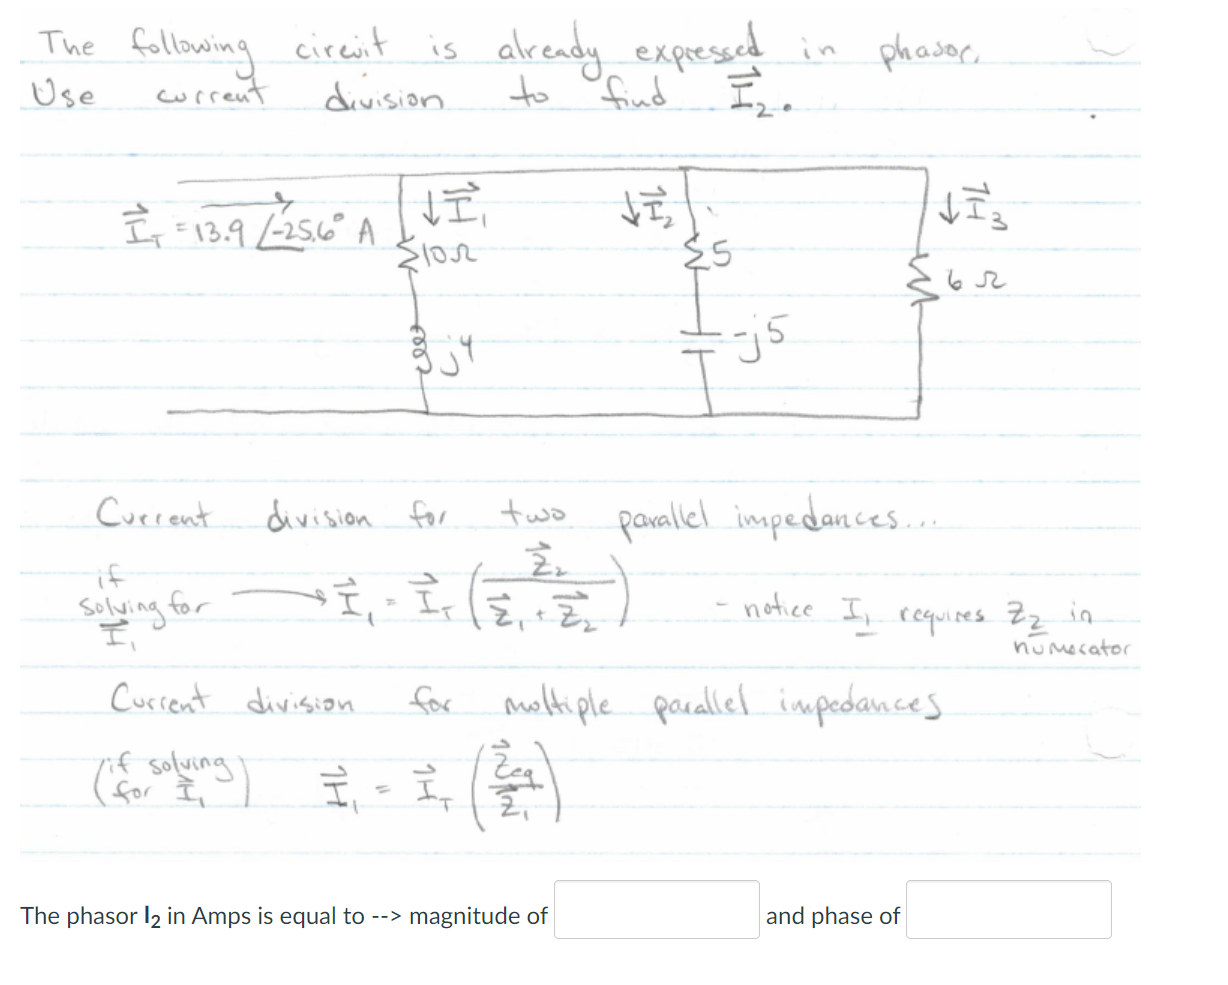 The following circuit is already expressed in phasor.
Use current division to find I₂.
I_T = 13.9 ∠-25.6° A
↓I₁
↓I₂
↓I₃
10Ω
5
6 Ω
j4
-j5
Current division for two parallel impedances...
if solving for I₁ → I₁ = I_T (Z₂ / (Z₁ + Z₂)) - notice I₁ requires Z₂ in numerator
Current division for multiple parallel impedances
(if solving for I₁) I₁ = I_T (Zeq / Z₁)
The phasor I₂ in Amps is equal to --> magnitude of and phase of